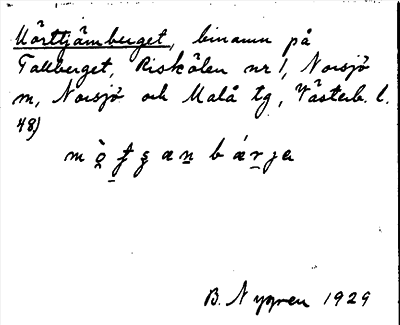 Mörttjämberget, binamn på
Tallberget, Riskälen nr 1, Norsjö
m, Norsjö och Malå tg, Västerb. l.
48)
B. Nygren 1929